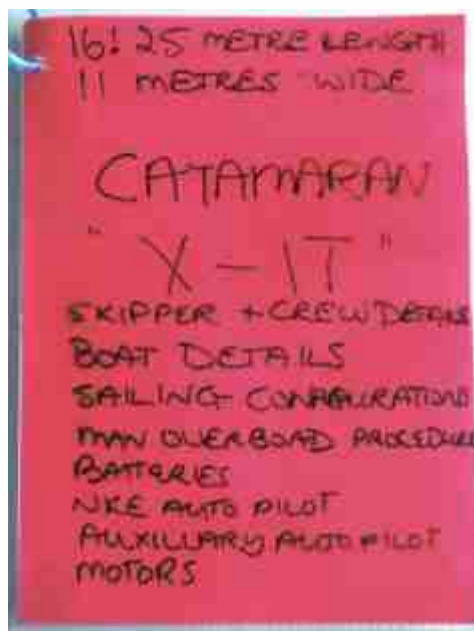 16! 25 METRE LENGTH
11 METRES WIDE
CATAMARAN
"X-IT"
SKIPPER + CREW DETAILS
BOAT DETAILS
SAILING CONFIGURATIONS
MAN OVERBOAD PROCEDURE
BATTERIES
NKE AUTO PILOT
AUXILLARY AUTO PILOT
MOTORS